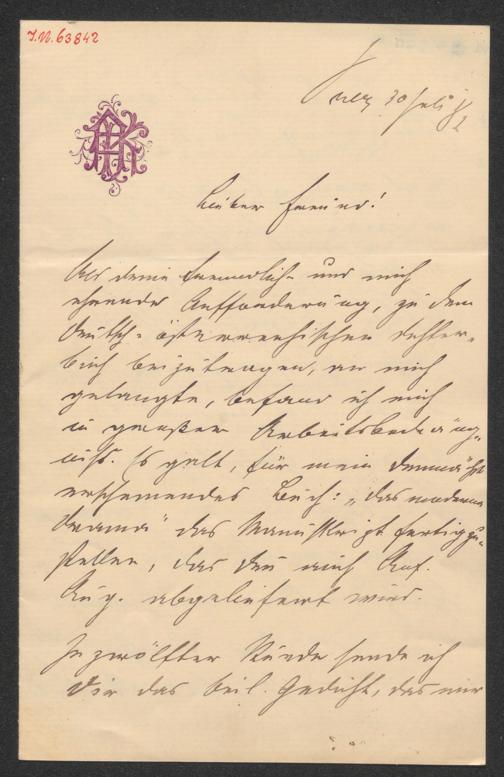 I.N. 63842
30 Juli 82
Lieber Freund!
Als deine freundliche und mich
ehrende Aufforderung, zu dem
deutsch-österreichischen Dichter-
buch beizutragen, an mich
gelangte, befand ich mich
in großer Arbeitsbedräng-
niß. Es galt, für mein demnächst
erscheinendes Buch: „das moderne
Drama" das Manuskript fertigzu-
stellen, das den
Aug. abgeliefert wird.
In zwölfter Stunde sende ich
Dir das beil. Gedicht, das mir